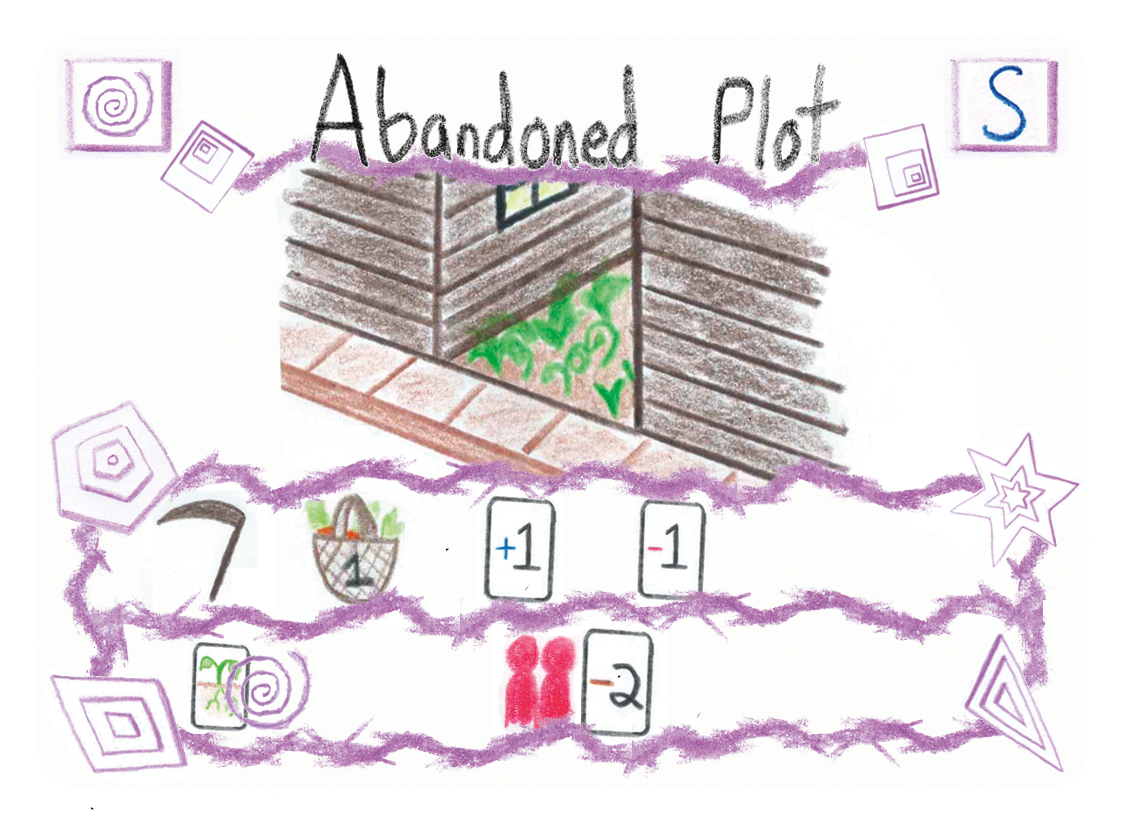 Abandoned Plot
S
1 +1 -1
-2